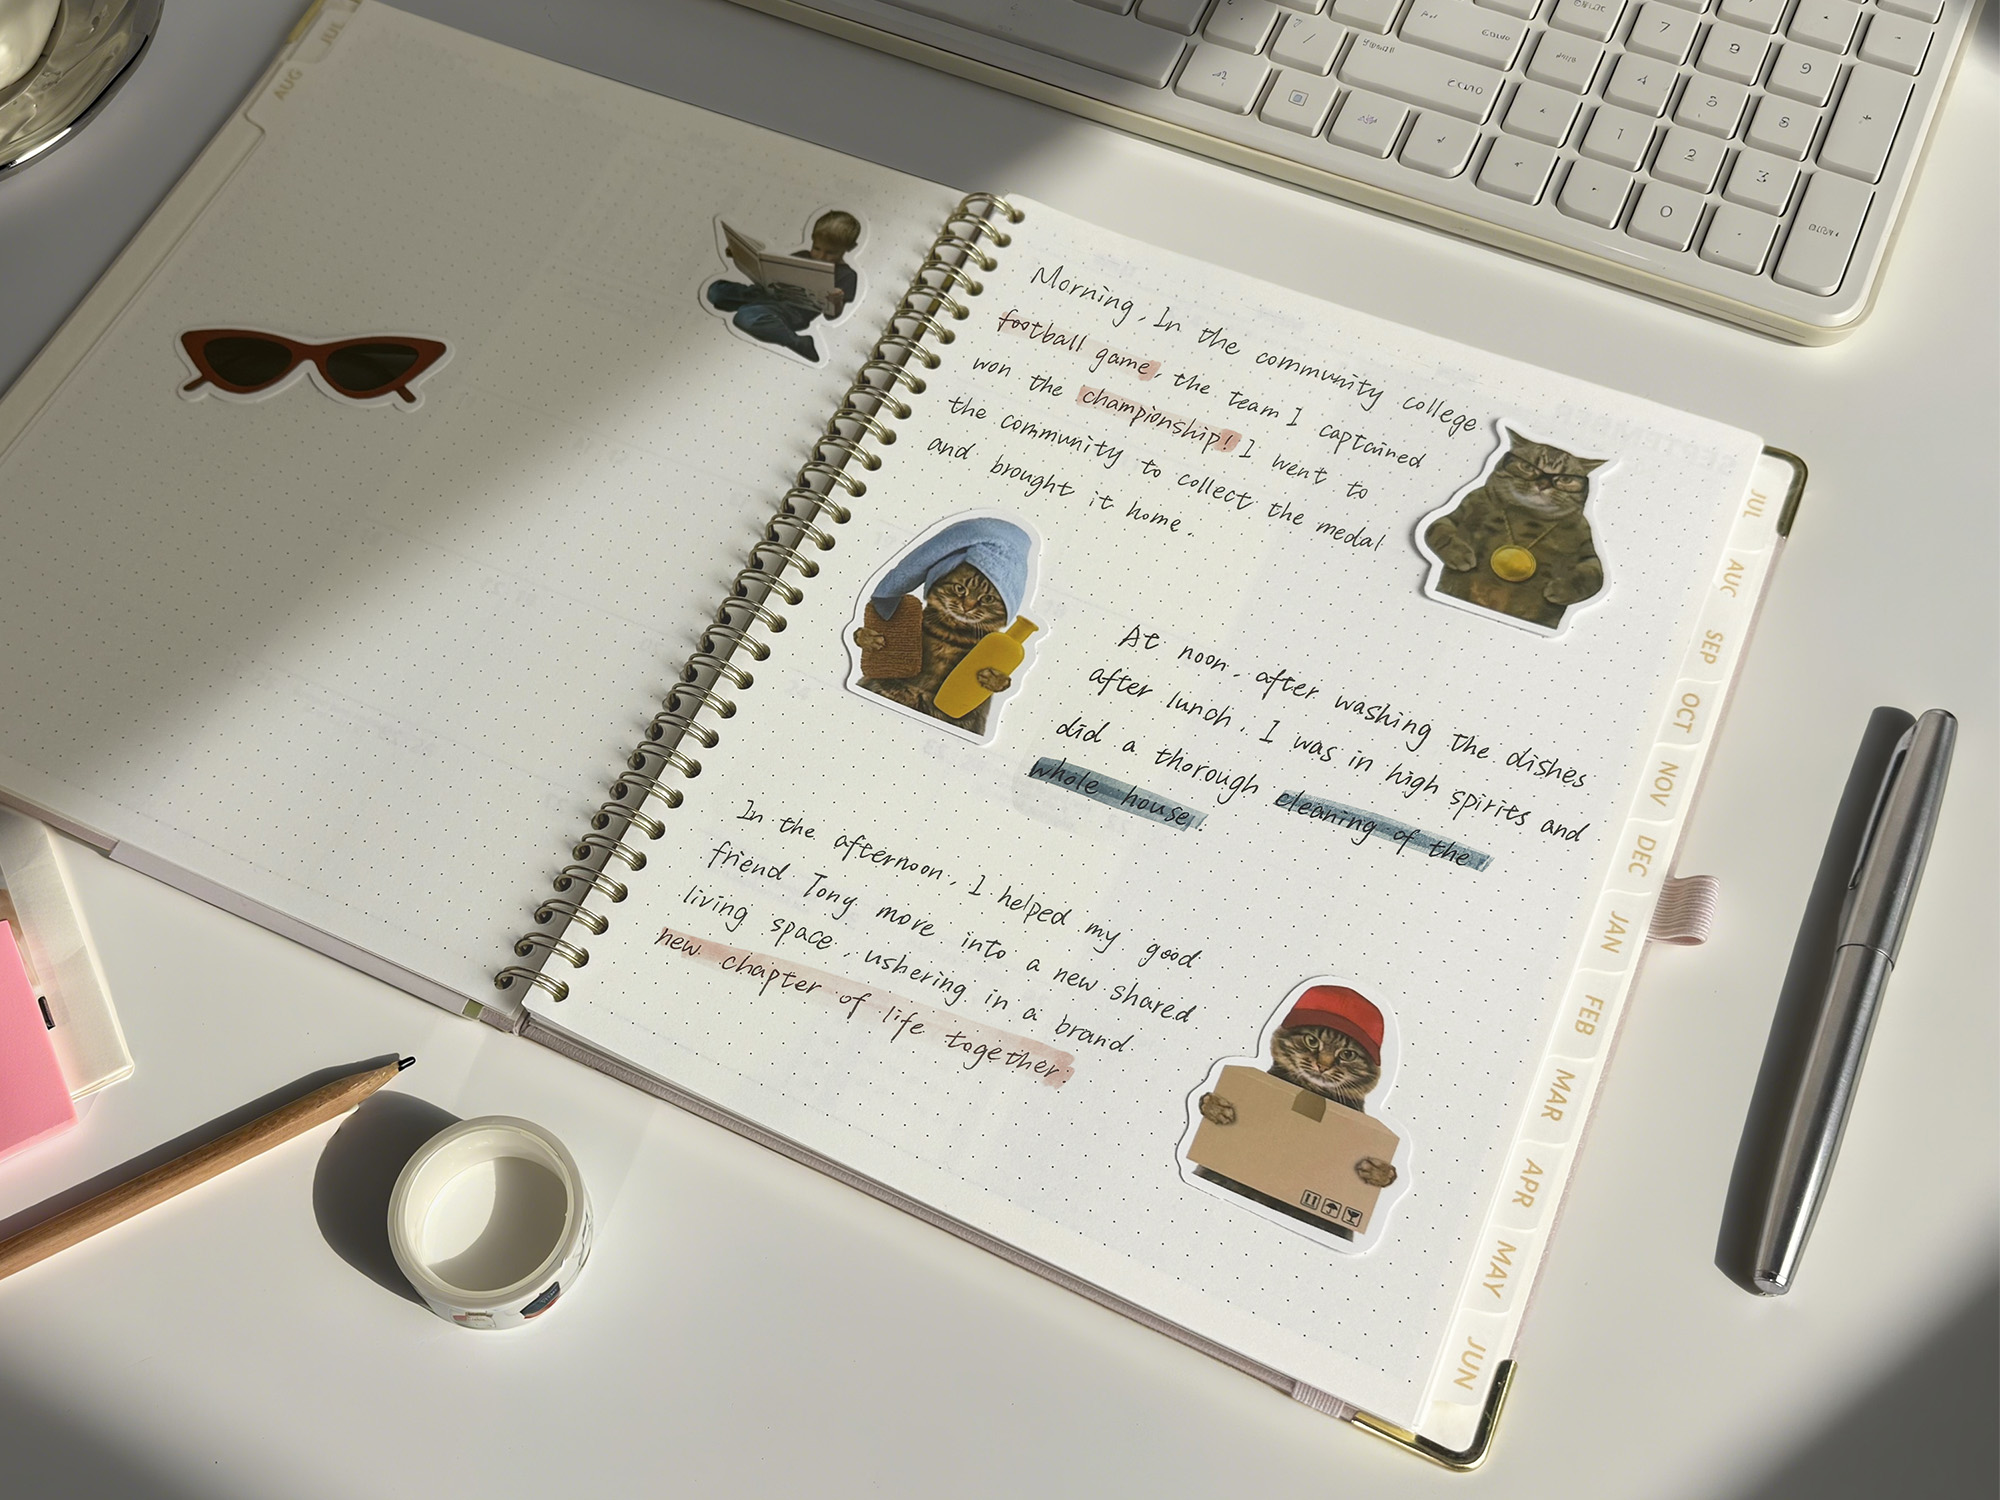 JUL
AUG
Morning, In the community college
football game, the team I captained
won the championship! I went to
the community to collect the medal
and brought it home.
At noon, after washing the dishes
after lunch, I was in high spirits and
did a thorough cleaning of the
whole house.
In the afternoon, I helped my good
friend Tony move into a new shared
living space, ushering in a brand
new chapter of life together.
JUL
AUG
SEP
OCT
NOV
DEC
JAN
FEB
MAR
APR
MAY
JUN
7
4
1
2
3
0